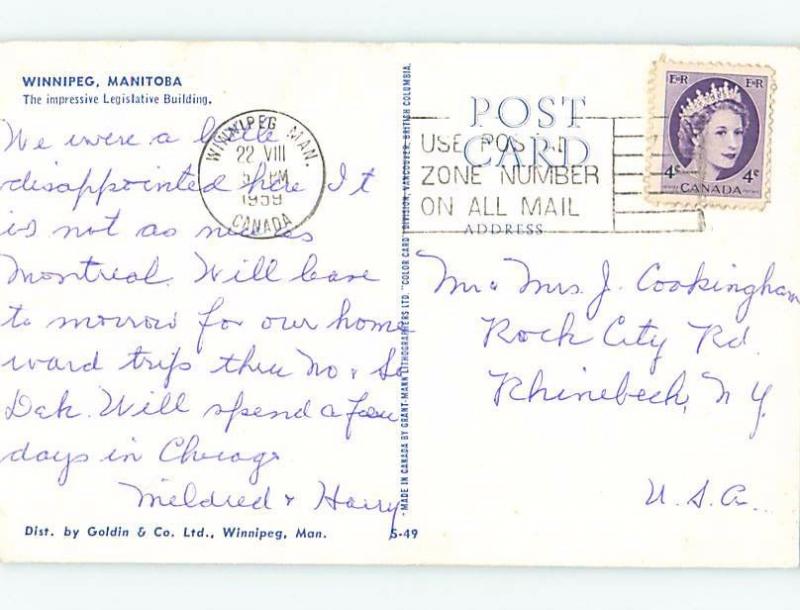 WINNIPEG, MANITOBA
The impressive Legislative Building.
We were a little
disappointed here It
is not as nice as
Montreal. Will leave
to morrow for our home
ward trip thru No & So
Dak. Will spend a few
days in Chicago
Mildred & Harry
Dist. by Goldin & Co. Ltd., Winnipeg, Man.
S-49
MADE IN CANADA BY GRANT-MANN LITHOGRAPHERS LTD. "COLOR CARD" DIVISION, VANCOUVER, BRITISH COLUMBIA.
WINNIPEG MAN.
22 VIII
PM
1959
CANADA
POST
CARD
ADDRESS
USE POSTAL
ZONE NUMBER
ON ALL MAIL
E R E R
4c 4c
CANADA
Mr & Mrs. J. Cookingham
Rock City Rd.
Rhinebeck, N Y.
U. S. A.